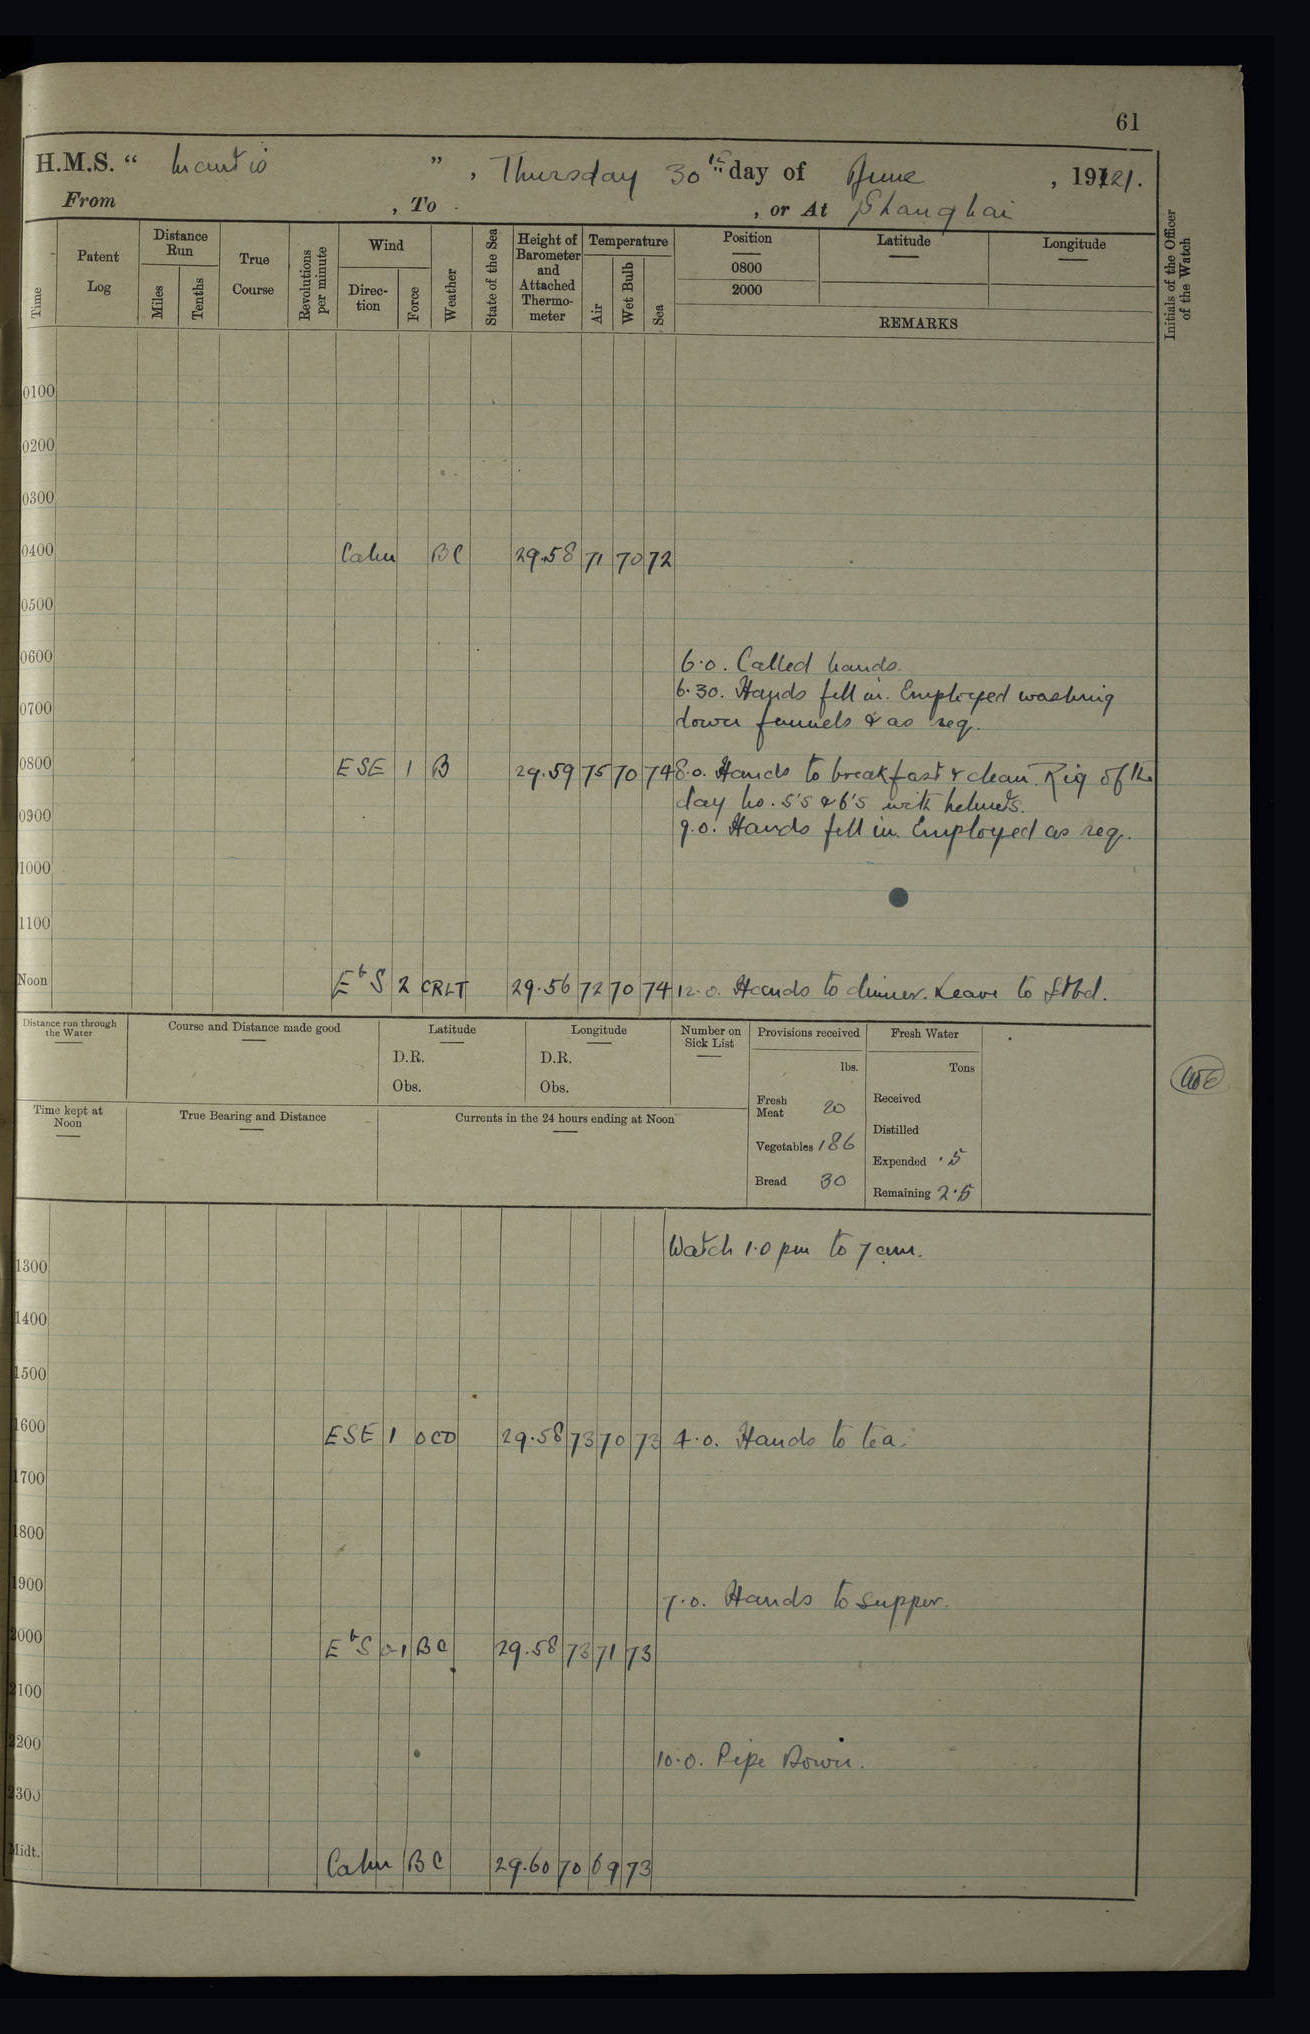 61
H.M.S. “ Mantis ”, Thursday 30th day of June, 1921.
From , To , or At Shanghai
Time
Patent Log
Distance Run
Miles
Tenths
True Course
Revolutions per minute
Wind
Direction
Force
Weather
State of the Sea
Height of Barometer and Attached Thermometer
Temperature
Air
Wet Bulb
Sea
Position
0800
2000
Latitude
Longitude
REMARKS
Initials of the Officer of the Watch
0100
0200
0300
0400 Calm BC 29.58 71 70 72
0500
0600 6.0. Called hands.
6.30. Hands fell in. Employed washing
0700 down funnels & as req.
0800 ESE 1 B 29.59 75 70 74 8.0. Hands to breakfast & clean. Rig of the
day No. 5's & 6's with helmets.
0900 9.0. Hands fell in. Employed as req.
1000
1100
Noon EbS 2 CRLT 29.56 72 70 74 12.0. Hands to dinner. Leave to Stbd.
Distance run through the Water
Course and Distance made good
Latitude
D.R.
Obs.
Longitude
D.R.
Obs.
Number on Sick List
Provisions received
lbs.
Fresh Meat 20
Vegetables 186
Bread 30
Fresh Water
Tons
Received
Distilled
Expended .5
Remaining 2.5
Time kept at Noon
True Bearing and Distance
Currents in the 24 hours ending at Noon
Watch 1.0 pm to 7 am.
1300
1400
1500
1600 ESE 1 OCD 29.58 73 70 73 4.0. Hands to tea.
1700
1800
1900 7.0. Hands to supper.
2000 EbS 0-1 BC 29.58 73 71 73
2100
2200 10.0. Pipe Down.
2300
Midt. Calm BC 29.60 70 69 73